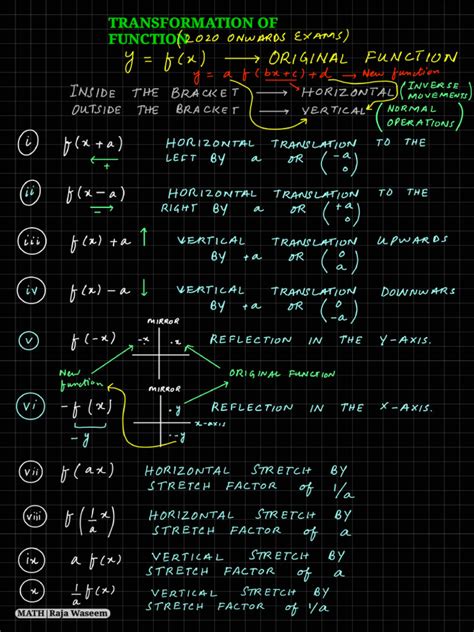 TRANSFORMATION OF
FUNCTION (2020 ONWARDS EXAMS)
y = f(x) → ORIGINAL FUNCTION
y = a f(bx+c)+d → New function
INSIDE THE BRACKET → HORIZONTAL (INVERSE MOVEMENTS)
OUTSIDE THE BRACKET → VERTICAL (NORMAL OPERATIONS)
(i) f(x+a) HORIZONTAL TRANSLATION TO THE
← + LEFT BY a OR (-a 0)
(ii) f(x-a) HORIZONTAL TRANSLATION TO THE
→ − RIGHT BY a OR (+a 0)
(iii) f(x)+a ↑ VERTICAL TRANSLATION UPWARDS
BY +a OR (0 a)
(iv) f(x)-a ↓ VERTICAL TRANSLATION DOWNWARS
BY +a OR (0 -a)
MIRROR
(v) f(-x) -x x REFLECTION IN THE Y-AXIS.
New function
ORIGINAL FUNCTION
MIRROR
(vi) -f(x) y REFLECTION IN THE X-AXIS.
x-axis
-y -y
(vii) f(ax) HORIZONTAL STRETCH BY
STRETCH FACTOR of 1/a
(viii) f(1/a x) HORIZONTAL STRETCH BY
STRETCH FACTOR of a
(ix) a f(x) VERTICAL STRETCH BY
STRETCH FACTOR of a
(x) 1/a f(x) VERTICAL STRETCH BY
STRETCH FACTOR of 1/a
MATH | Raja Waseem